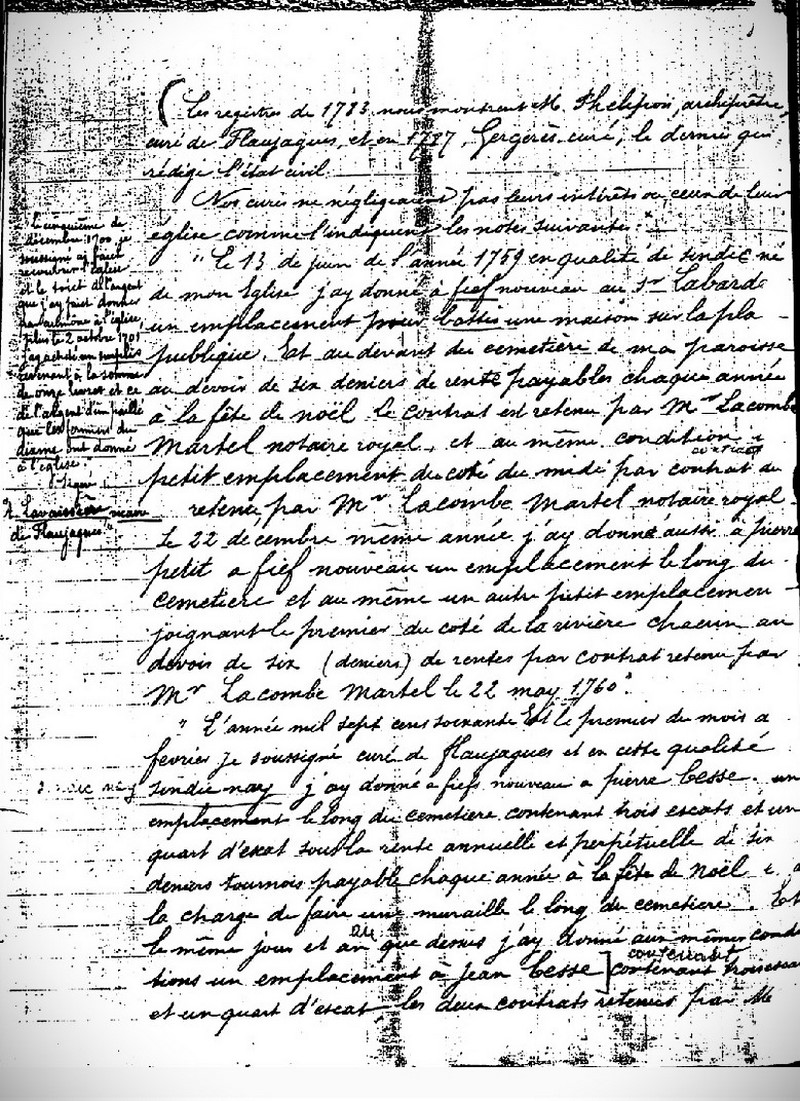 ( Les registres de 1783 nous montrent M. Phelipion, archiprêtre,
curé de Flaujagues, et en 1787, Gergerès curé, le dernier qui
rédige l'état civil.
Nos curés ne négligeaient pas leurs intérêts ou ceux de leur
église comme l'indiquent les notes suivantes :
" Le 13 de juin de l'année 1759 en qualité de sindic né
de mon Eglise j'ay donné a fief nouveau au Sr Labarde
un emplacement pour battir une maison sur la pla -
publique. Est au devant du cemetiere de ma paroisse
au devoir de six deniers de rente payables chaque année
à la fête de noël le contrat est retenu par Mr Lacombe
Martel notaire royal, et au même condition
petit emplacement du coté du midi par contrat du
retenu par Mr Lacombe Martel notaire royal
Le 22 décembre même année j'ay donné aussi à pierre
petit a fief nouveau un emplacement le long du
cemetiere et au même un autre petit emplacemen -
joignant le premier du coté de la rivière chacun au
devois de six (deniers) de rentes par contrat retenu par
Mr Lacombe Martel le 22 may 1760".
" L'année mil sept cens soixante Est le premier du mois a
fevrier je soussigné curé de flaujagues et en cette qualité
sindic nay j'ay donné a fiefs nouveau a pierre Cesse un
emplacement le long du cemetiere contenant trois escats et un
quart d'escat sous la rente annuelle et perpétuelle de six
deniers tournois payable chaque année à la fête de Noël e. a
la charge de faire une muraille le long du cemetiere. Et
le même jour et an que dessus j'ay donné aux mêmes condi
tions un emplacement à jean Cesse] contenant trois escats
contenant
et un quart d'escat les deux contrats retenus par Me
Le cinquième de
décembre 1700 je
soussigné ay fait
recouvrir l'église
et le toict de l'argent
que j'ay faict donner
à l'église
plus le 2 octobre 1701
j'ay acheté un surplis
revenant à la somme
de onze livres et ce
de l'argent d'un paille
que les fermiers du
disme ont donné
à l'église.
Signé :
Lavaissière
de Flaujagues"